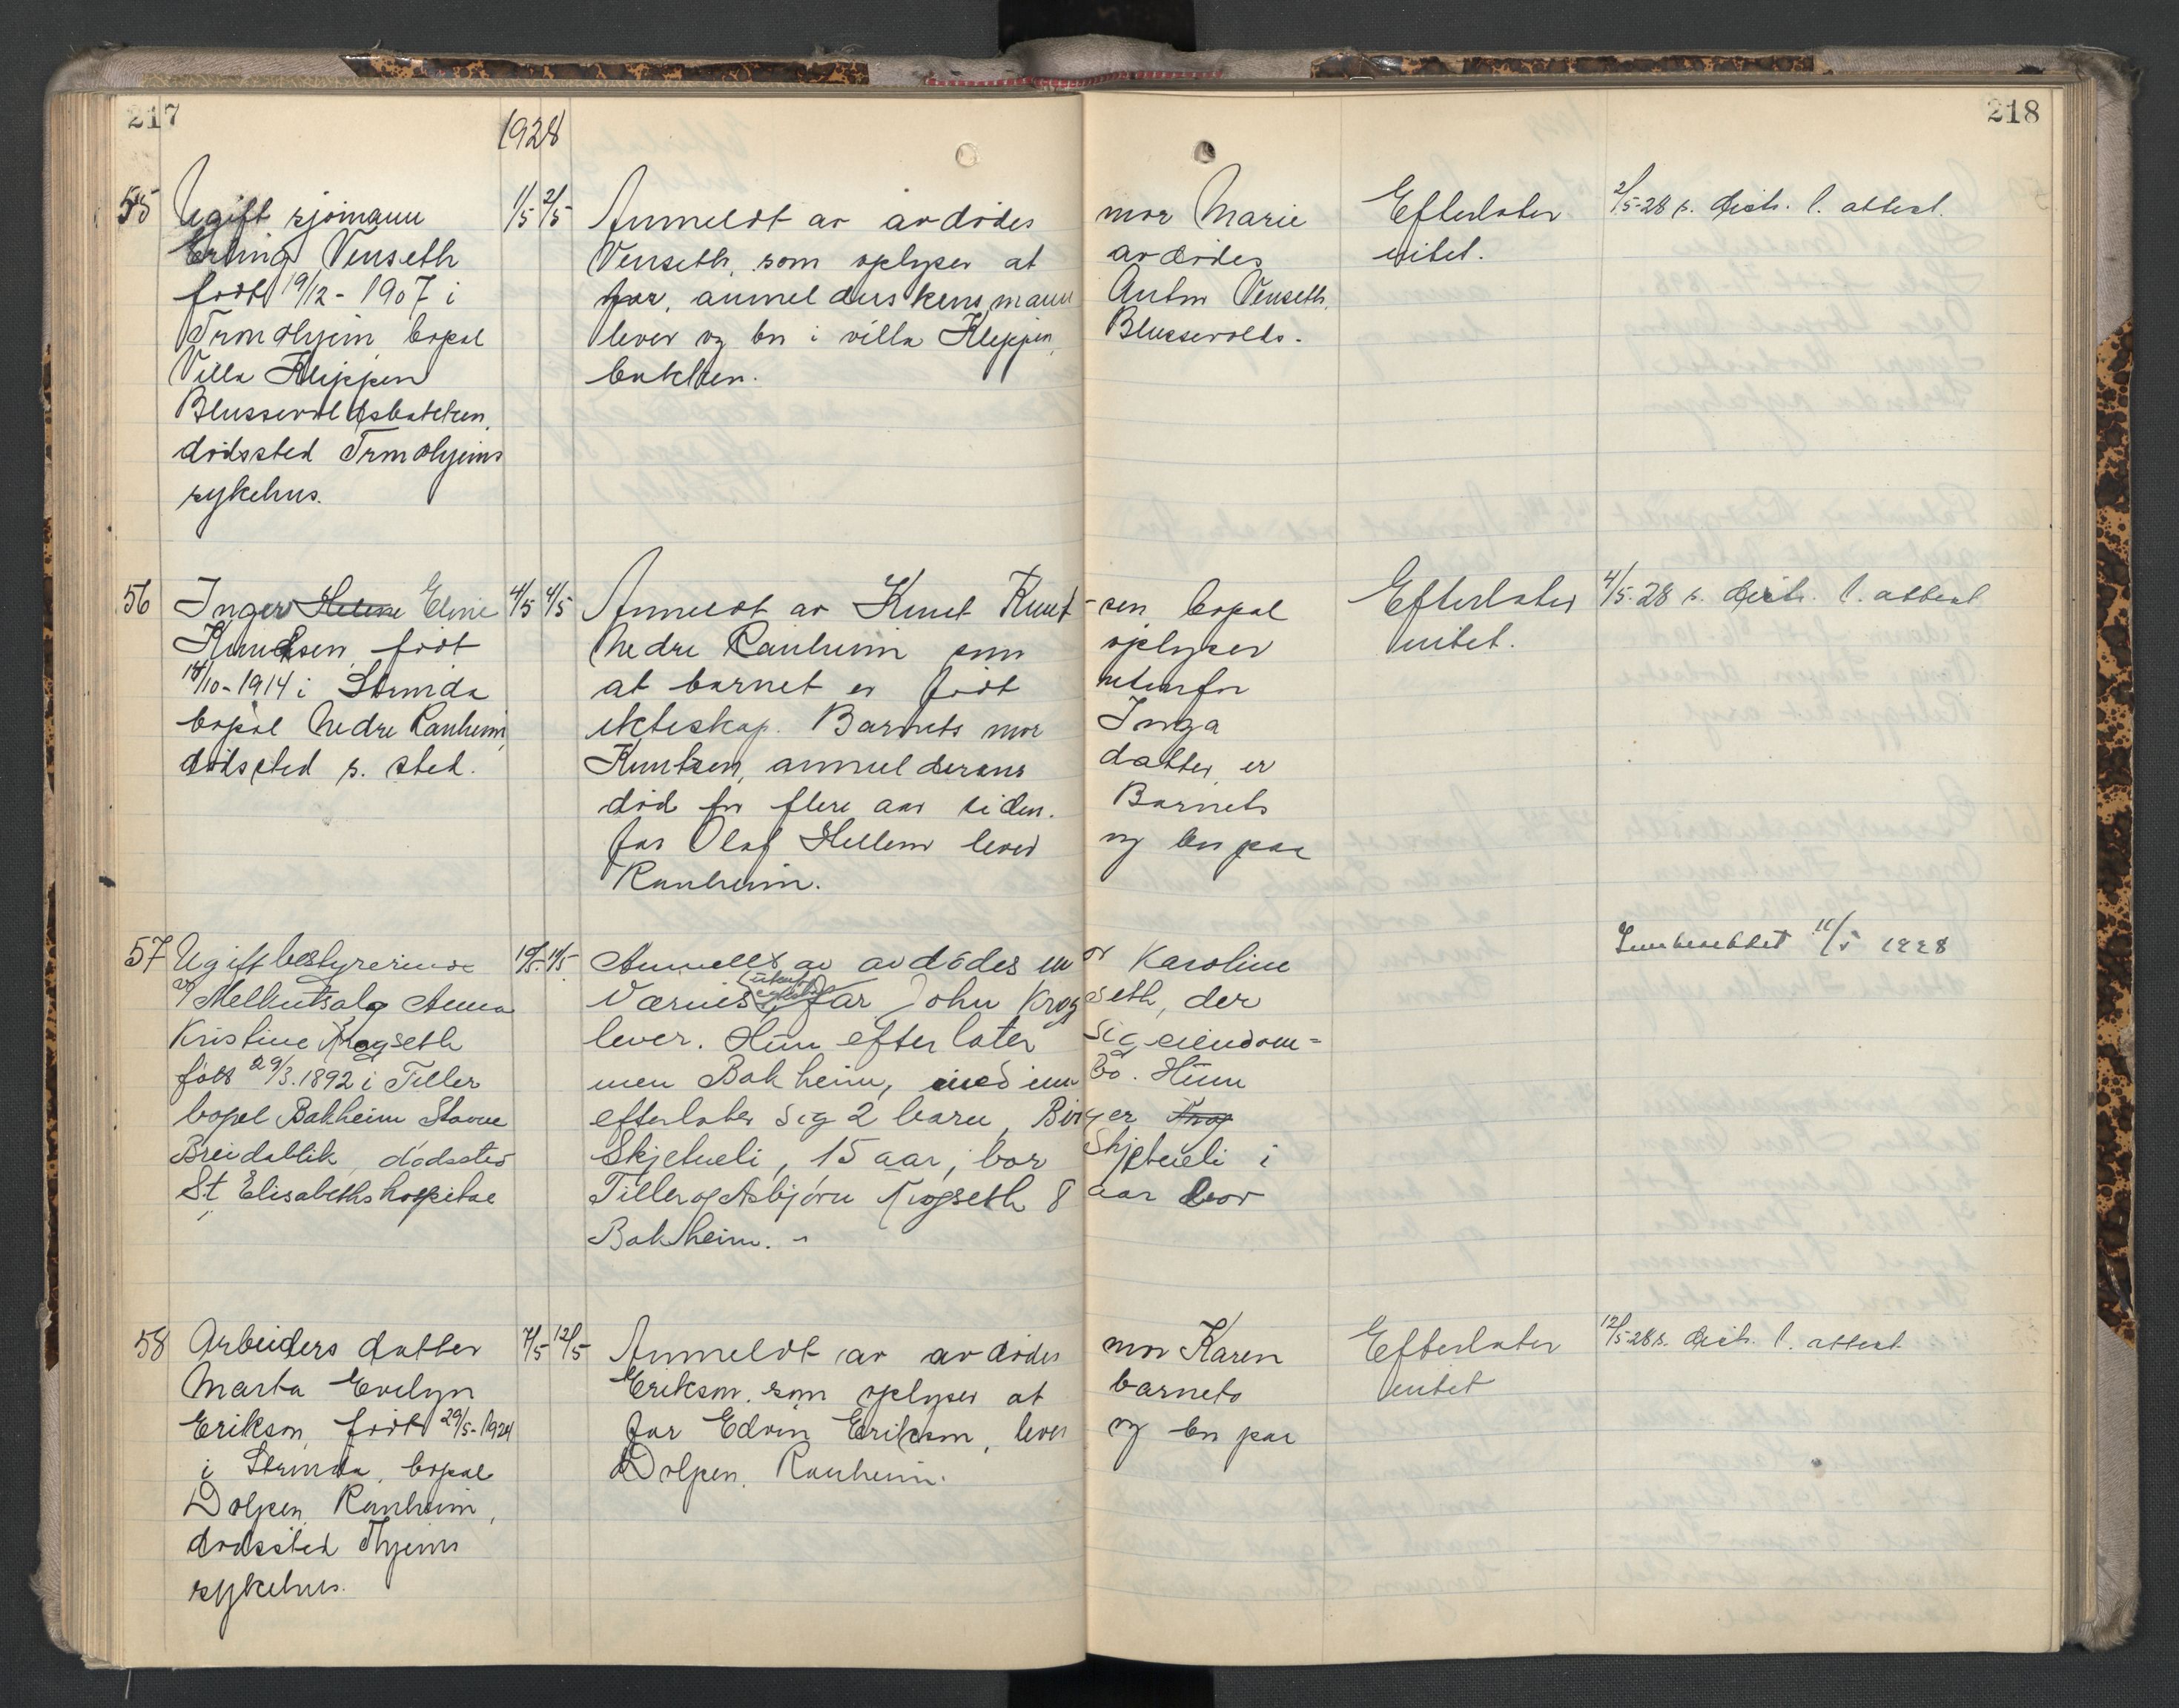 217
218
1928
55 Ugift sjømann 1/5 2/5 Anmeldt av avdødes mor Marie Efterlater 2/5-28 s. distr. l. attest.
Erling Venseth Venseth, som oplyser at avdødes intet.
født 19/12-1907 i far, anmelderskens mann Anton Venseth,
Trondhjem bopæl lever og bor i villa Kleppen, Blussevolds-
Villa Kleppen bakken.
Blussevoldsbakken,
dødssted Trondhjems
sykehus.
56 Inger Helene Eline 4/5 4/5 Anmeldt av Knut Knut-sen bopæl Efterlater 4/5-28 s. distr. l. attest
Knudsen født Nedre Ranheim som oplyser intet.
14/10-1914 i Strinda at barnet er født utenfor
bopæl Nedre Ranheim, ekteskap. Barnets mor Inga
dødssted s. sted. Kuntsen, anmelderens datter er
død for flere aar siden. Barnets
far Olaf Hellem lever og bor paa
Ranheim.
57 Ugift bestyrerinde 10/5 11/5 Anmeldt av avdødes mor Karoline 11/5 1928
v/ Melkutsalg Anna Værnes far John Krogseth, der
Kristine Krogseth lever. Hun efterlater sig eiendom=
født 29/3.1892 i Tiller men Bakheim, med innbo. Hun
bopel Bakheim Stavne efterlater sig 2 barn, Birger Krog
Breidablik, dødssted Skjetneli, 15 aar, bor Skjetneli i
St. Elisabeths hospital Tiller og Asbjørn Krogseth 8 aar bor
Bakheim. -
58 Arbeiders datter 7/5 12/5 Anmeldt av avdødes mor Karen Efterlater 12/5-28 s. distr. l. attest
Marta Evelyn Erikson, som oplyser at barnets intet
Erikson, født 29/5-1924 far Edvin Erikson, lever og bor paa
i Strinda, bopæl Dolpen, Ranheim.
Dolpen, Ranheim,
dødssted Thjems
sykehus.